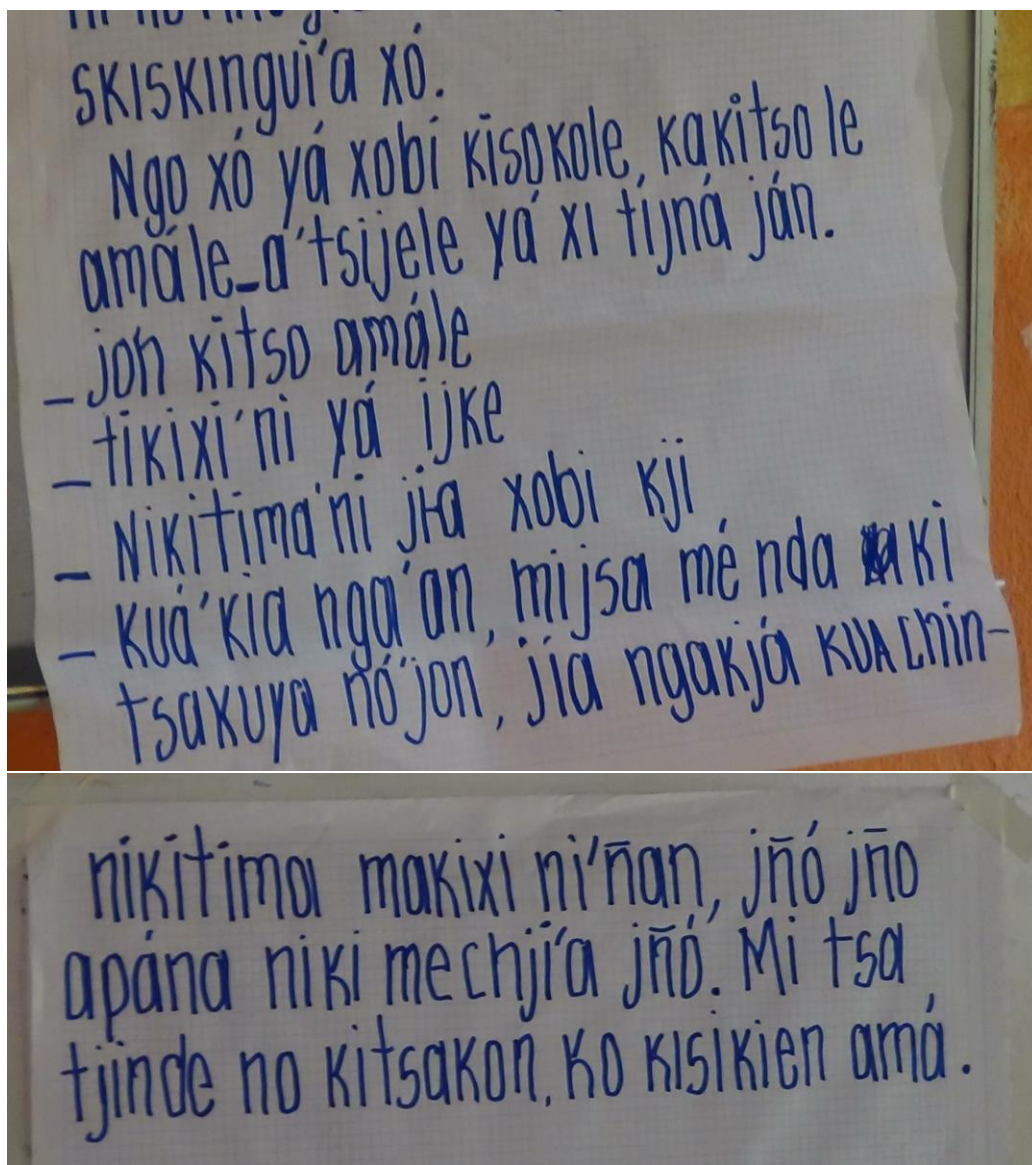 skiskingui'a xó.
Ngo xó yá xobi kisokole, kakitso le
amále_a'tsijele yá xi tijná ján.
_ jon kitso amále
_ tikixi'ni yá ijke
_ Nikitima'ni jia xobi kji
_ kuá'kia nga'an, mijsa mé nda ki
tsakuya nó'jon, jía ngakjá kuachin-
nikitima makixi ni'ñan, jñó jño
apána niki mechji'a jñó. Mi tsa
tjinde no kitsakon, ko kisikien amá.